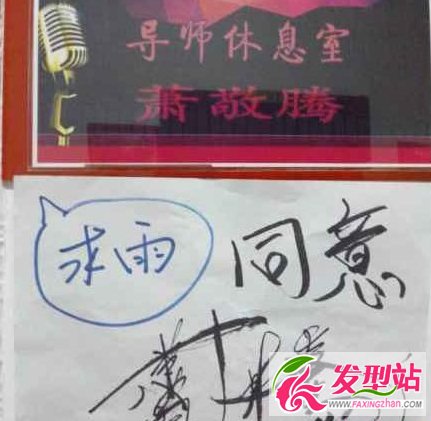 导师休息室
萧敬腾
求雨 同意
发型站
WWW.FAXINGZHAN.COM